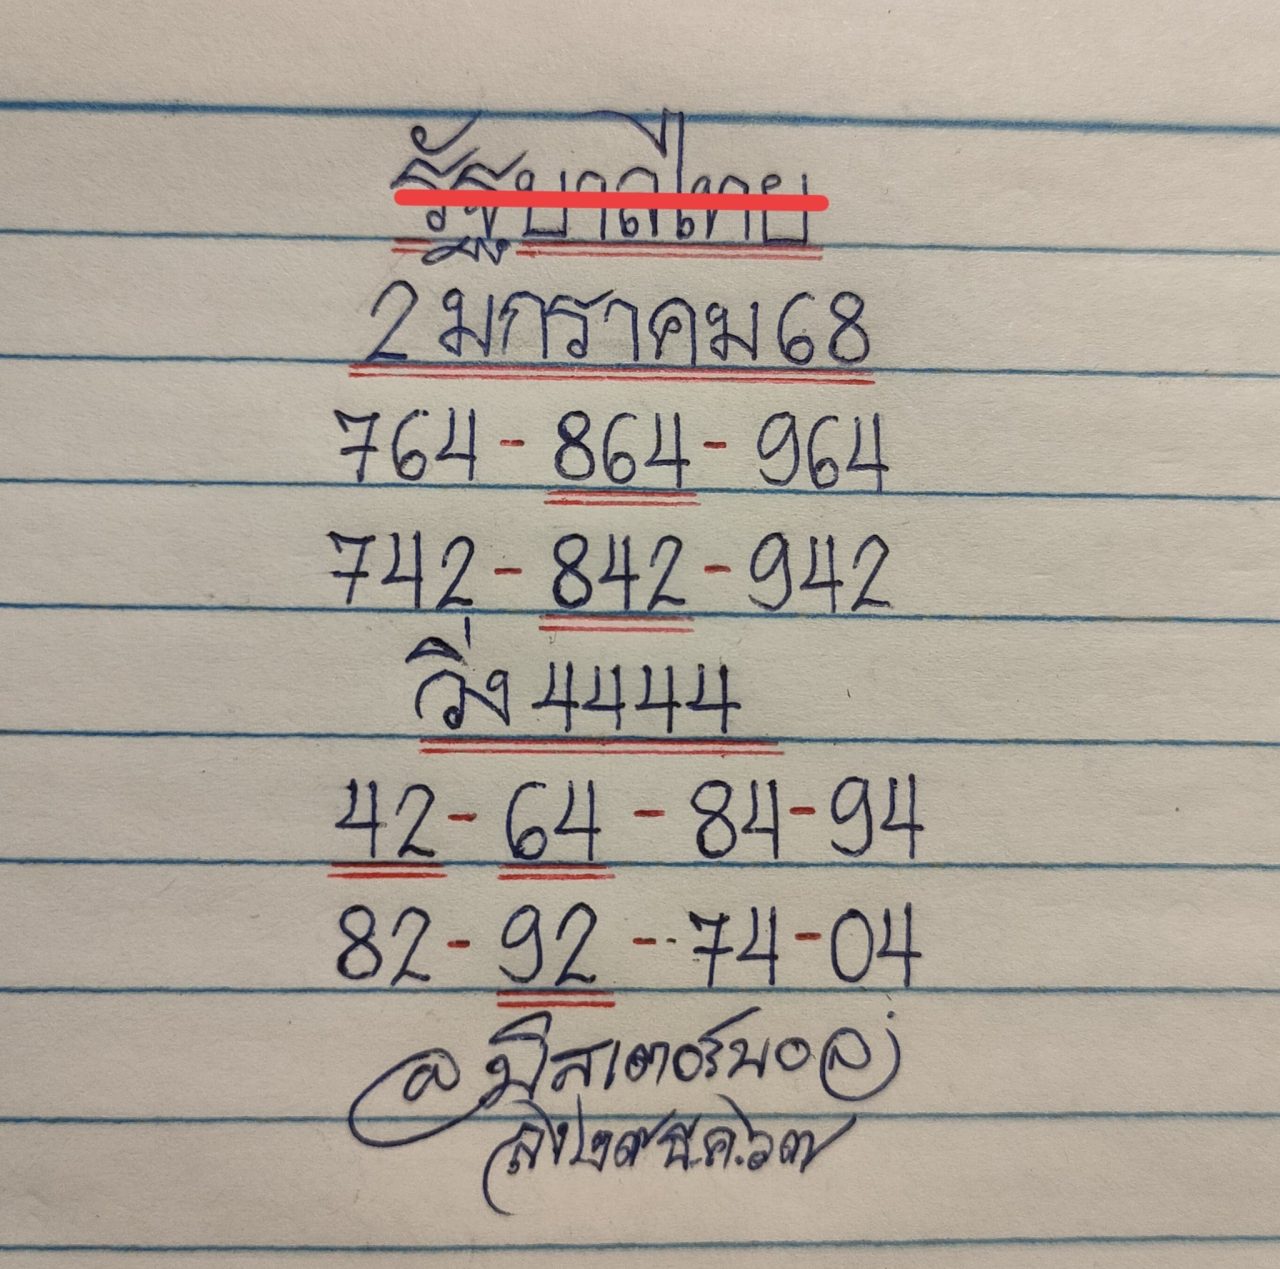 รัฐบาลไทย
2 มกราคม 68
764 - 864 - 964
742 - 842 - 942
วิ่ง 4444
42 - 64 - 84 - 94
82 - 92 - 74 - 04
@มิสเตอร์บอล
๒๙ ธ.ค. ๖๗